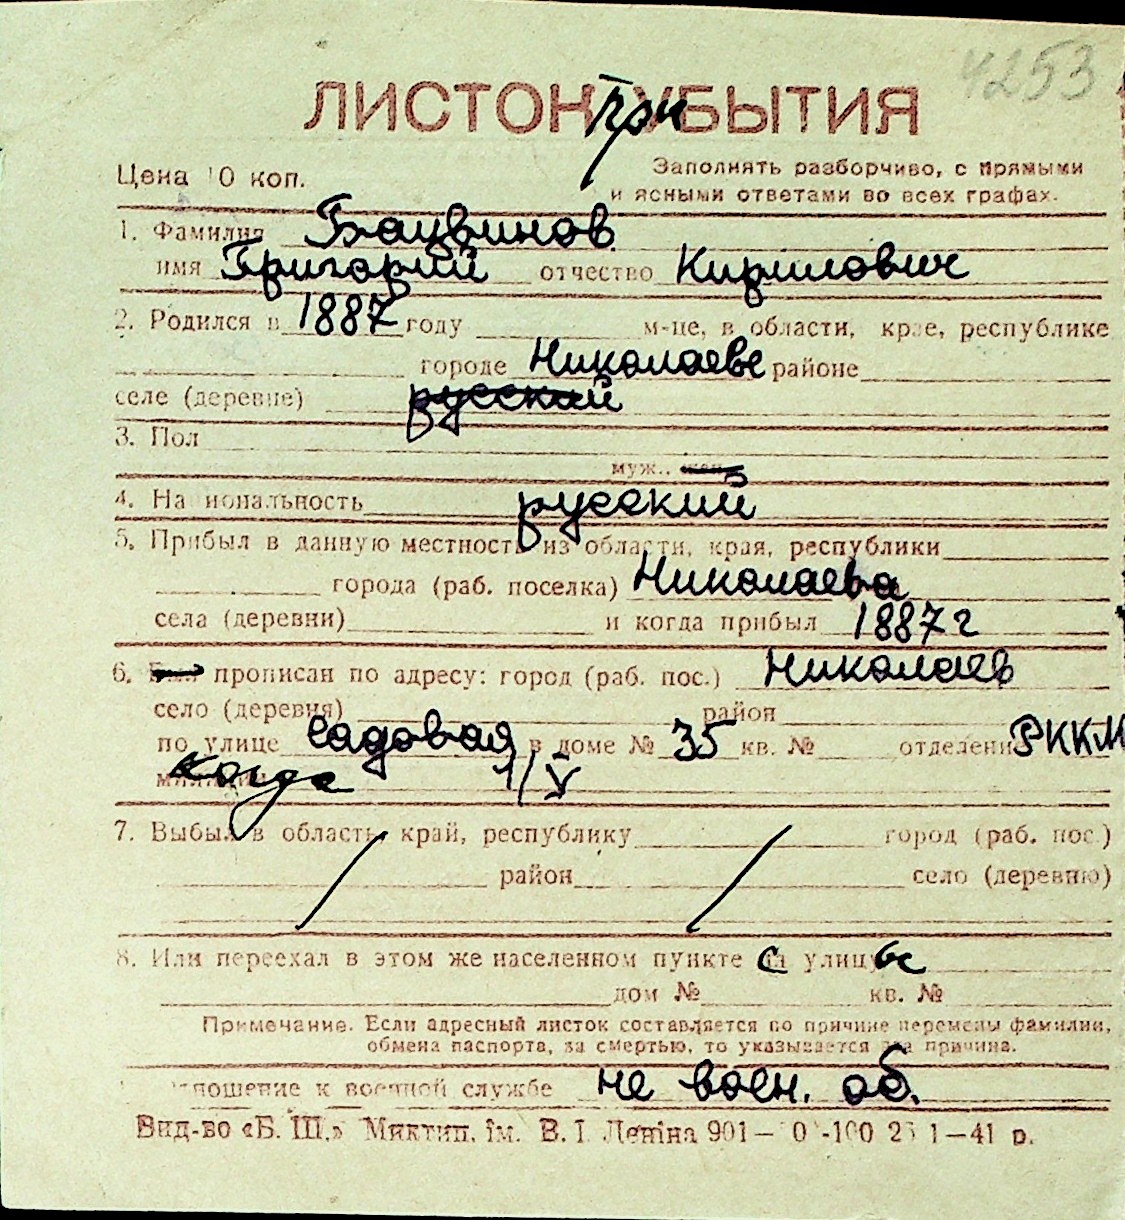 4253
ЛИСТОК УБЫТИЯ
При
Цена 10 коп.
Заполнять разборчиво, с прямыми
и ясными ответами во всех графах.
1. Фамилия Бацвинов
имя Григорий отчество Кирилович
2. Родился в 1887 году м-це, в области, крае, республике
городе Николаеве районе
селе (деревне) русский
3. Пол
муж., жен.
4. Национальность русский
5. Прибыл в данную местность из области, края, республики
города (раб. поселка) Николаева
села (деревни) и когда прибыл 1887 г
6. Был прописан по адресу: город (раб. пос.) Николаев
село (деревня) район
по улице садовая в доме № 35 кв. № отделени РККМ
милиции когда 1/V
7. Выбыл в область, край, республику город (раб. пос.)
район село (деревню)
8. Или переехал в этом же населенном пункте с улицы
дом № кв. №
Примечание. Если адресный листок составляется по причине перемены фамилии,
обмена паспорта, за смертью, то указывается эта причина.
отношение к военной службе не воен. об.
Вид-во «Б. Ш.» Миктип. ім. В. І. Леніна 901— -100 1—41 р.